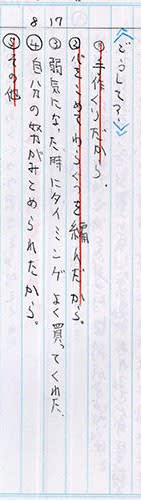 ≪どうして?≫
①手作くりだから.
②心をこめてわらぐつを編んだから。
17
③弱気になった時にタイミングよく買ってくれた.
8
④自分の努がみとめられたから。
⑤その他